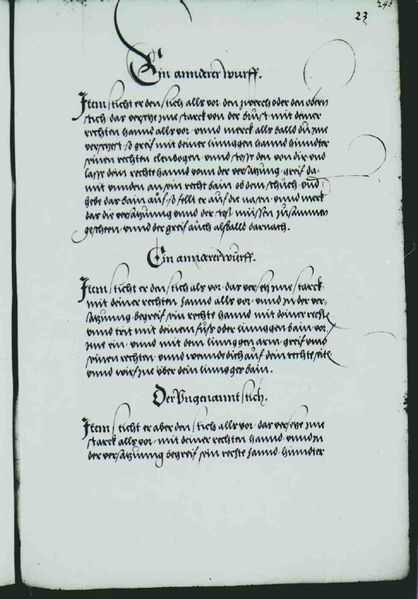 23
Ein annderer wurff.
Item sticht er den stich alls vor den zwerch oder den obern
stich, dar versetz ime starck von der brust mit deiner
rechten hannd alls vor. vnnd merck alls balld du ime
versetzest so greif mit deiner linnggen hannd hinnder
seinen rechten elenbogen vnnd stoss den von dir vnd
lass dein recht hannd vonn der versatzung greif da
mit vnnden an sein recht bain ob dem schuch, vnd
heb dar bain auf, so fellt er auf die nasen. vnnd merck
dar die versatzung vnnd der stoss müssen zusamme
geschehen. vnnd der greif auch alsballd darnach.
Ein annderer wurff.
Item sticht er den stich als vor. dar versetz ime starck
mit deiner rechten hannd alls vor. vnnd in der ver
satzung begreif sein rechte hannd mit deiner recht
vnnd trit mit deinem fuss oder linnggen bain vor
ime ein. vnnd mit dem linnggen arm greif vmb
seinen rechten. vnnd wennde dich auf dein rechte seite
vnnd wirf ine yber dein linngger bain.
Der Vngenannt stich.
Item sticht er aber den stich alls vor. dar versetz ime
starck alls vor. mit deiner rechten hannd. vnnd in
der versatzung begreif sein rechte hannd. hinnder